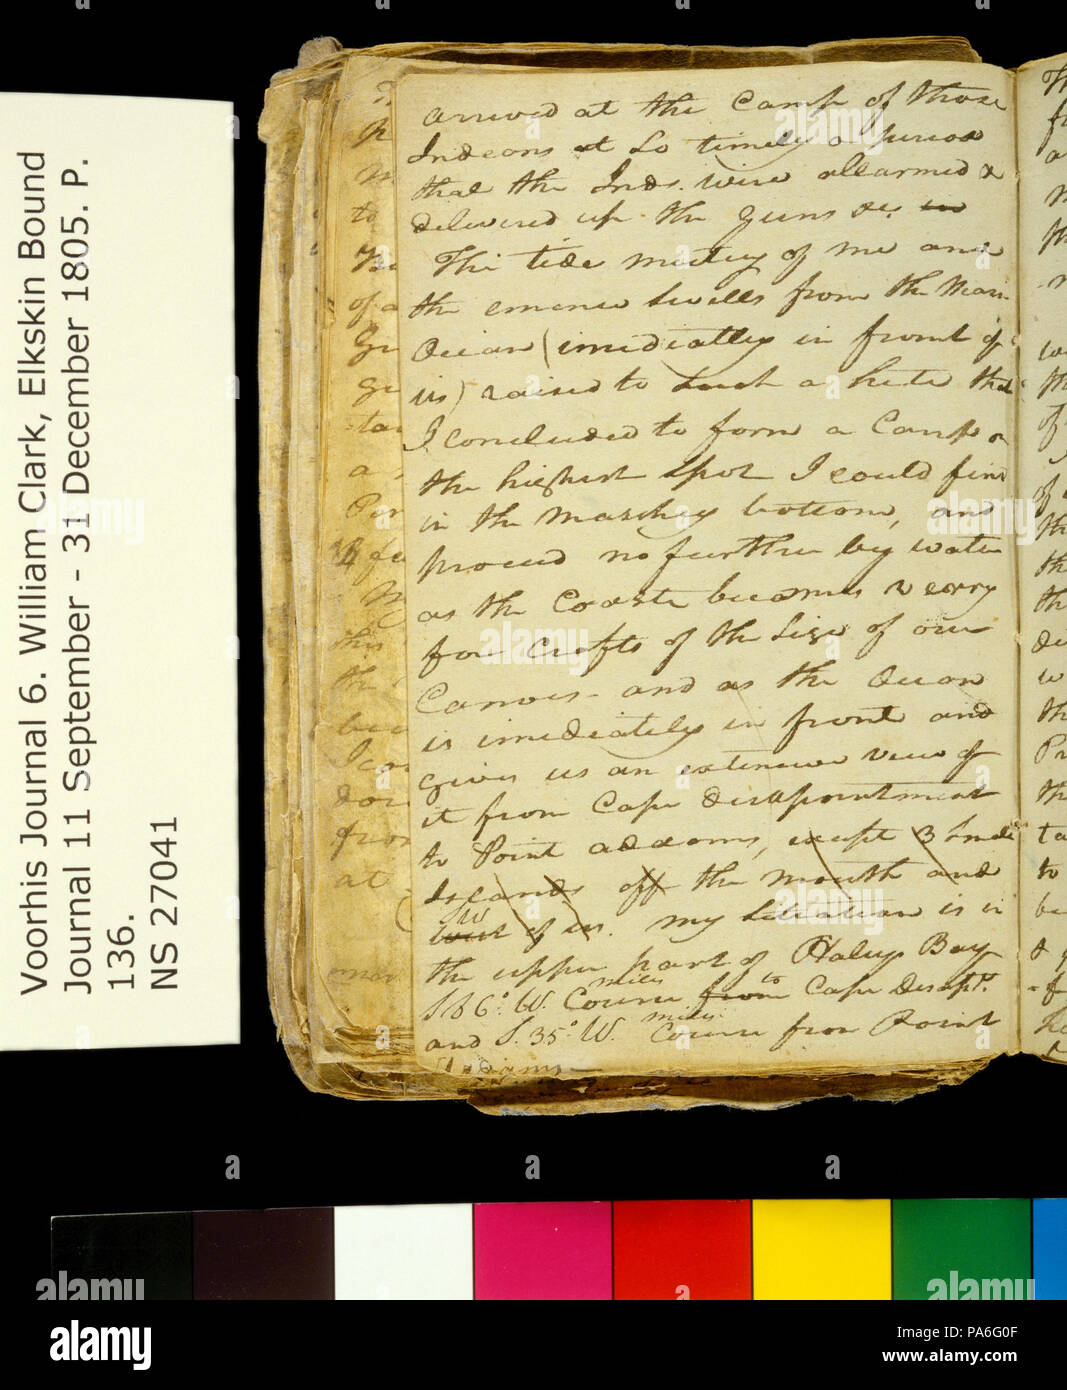 Voorhis Journal 6. William Clark, Elkskin Bound
Journal 11 September - 31 December 1805. P.
136.
NS 27041
arrived at the Camp of those
Indeans at So timely a period
that the Inds. were allarmed &
delivered up the guns &c. in
The tide meeting of me and
the emence Swells from the Main
Ocian (imediatly in front of
us) raised to Such a hite that
I concluded to form a Camp on
the highest Spot I could find
in the Marshey bottom, and
proceed no further by water
as the Coaste becomes verry
for Crafts of the Size of our
Canoes - and as the Ocian
is imediately in front and
gives us an extensive view of
it from Cape disapointment
to Point addams, except 3 Small
Islands off the mouth and
SW
West of us. my Situation is in
the upper part of Haleys Bay
miles to
S 86° W. Course from Cape Disapt.
miles
and S. 35° W. Course from Point
Addams
alamy
PA6G0F
www.alamy.com